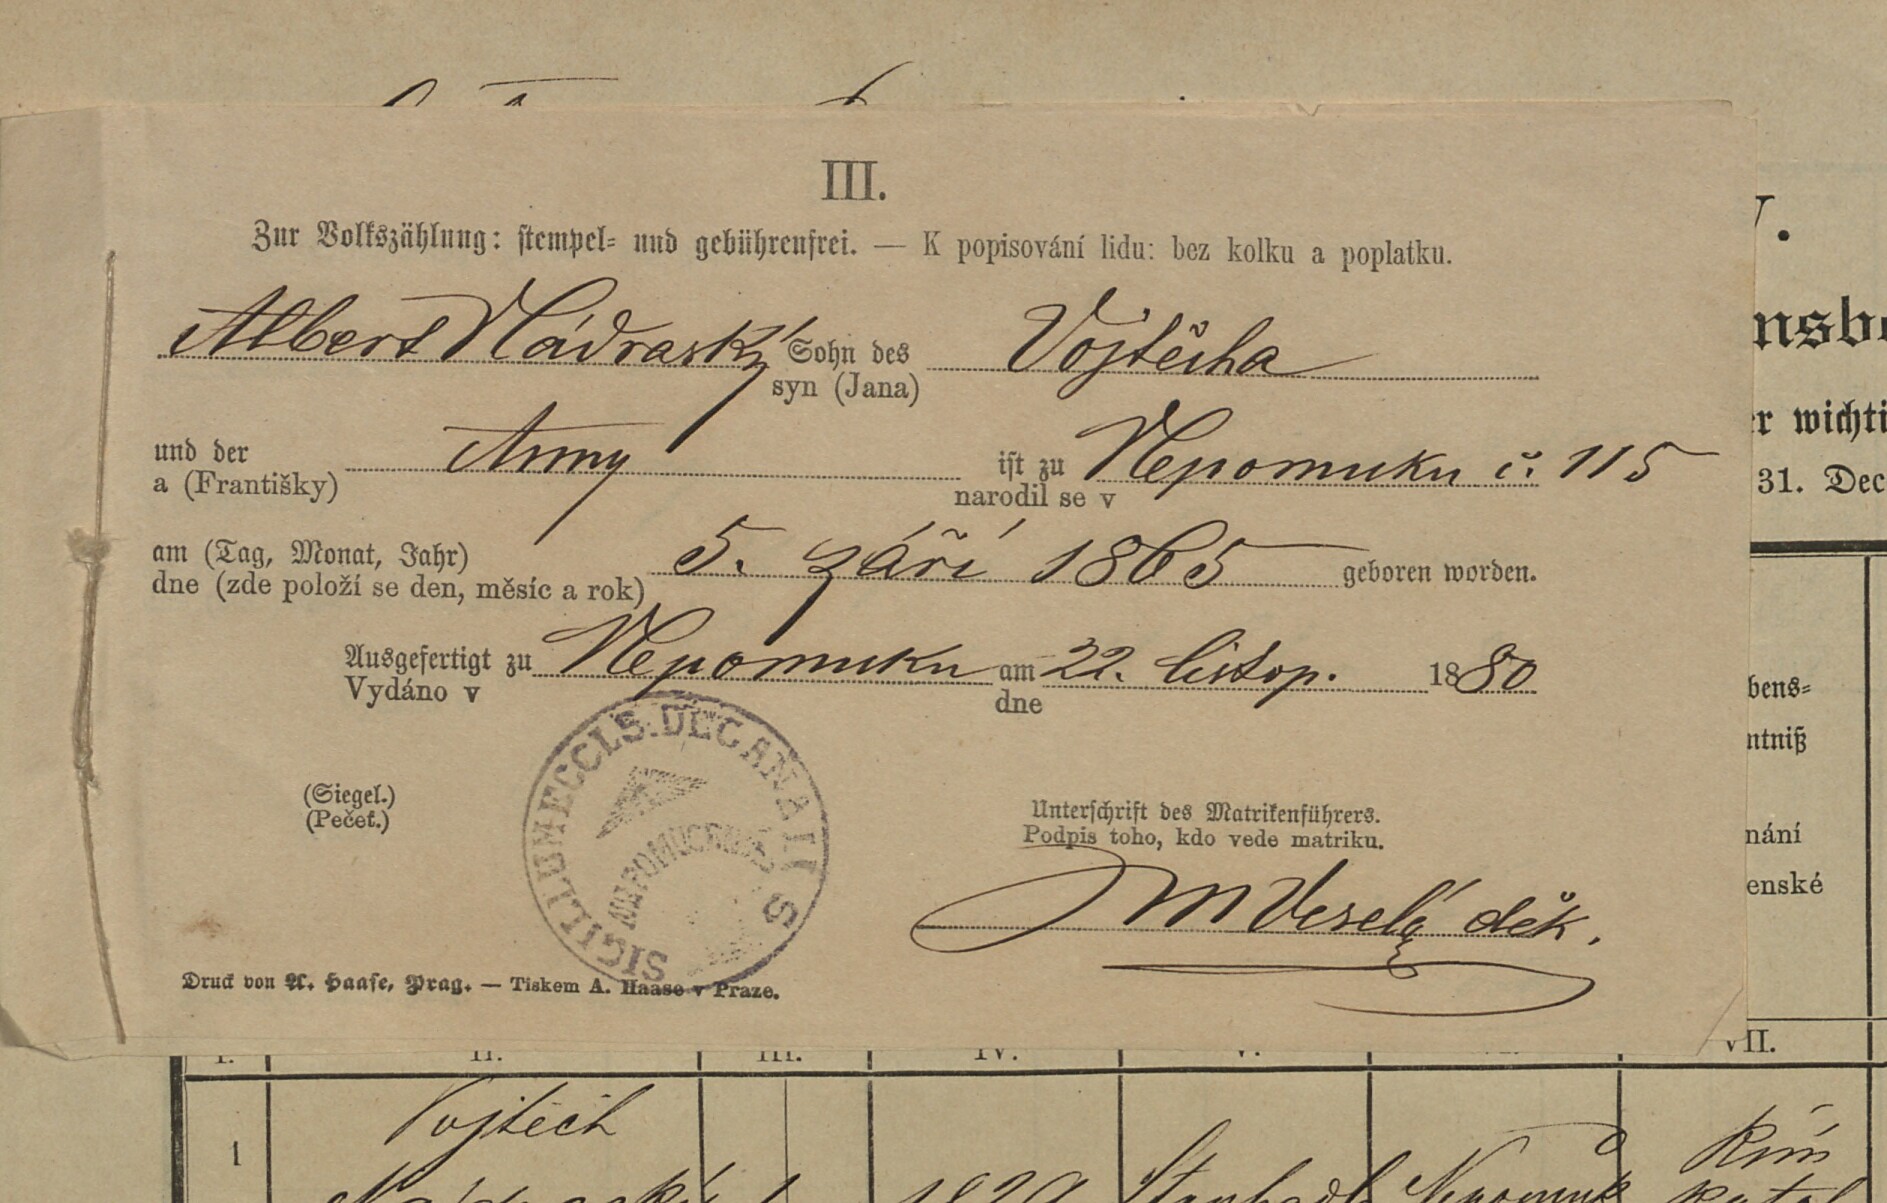 III.
Zur Volkszählung: stempel- und gebührenfrei. — K popisování lidu: bez kolku a poplatku.
Albert Nádraský Sohn des Vojtěcha
syn (Jana)
und der Anny ist zu Nepomuku č. 115
a (Františky) narodil se v
am (Tag, Monat, Jahr) 5. září 1865 geboren worden.
dne (zde položí se den, měsíc a rok)
Ausgefertigt zu Nepomuku am 22. listop. 1880
Vydáno v dne
SIGILLUM ECCLS. DECANALIS
NEPOMUCENSIS
(Siegel.)
(Pečeť.)
Unterschrift des Matrikenführers.
Podpis toho, kdo vede matriku.
M Veselý děk.
Druck von A. Haase, Prag. — Tiskem A. Haase v Praze.
V.
nsbe
er wichti
31. Dec
bens-
ntniß
nání
enské
I. II. III. IV. V. VII.
1 Vojtěch Řím
Nádraský 1 1829 Nepomuk